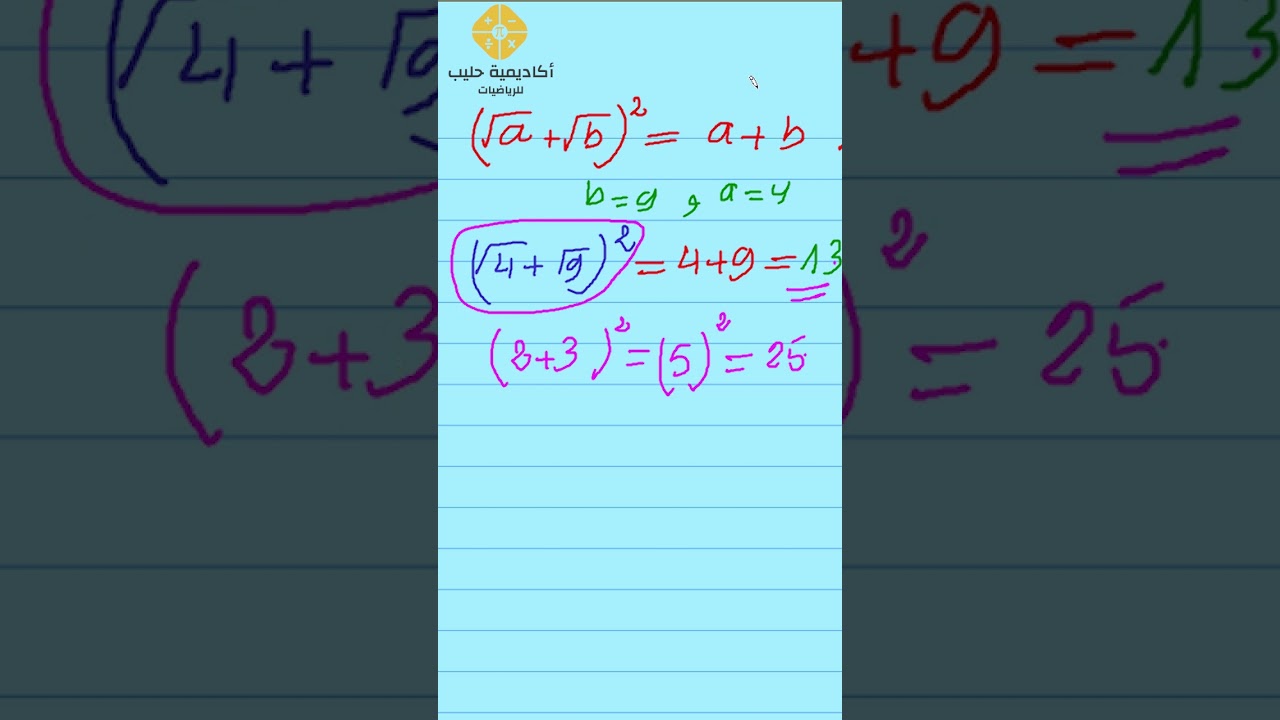 أكاديمية حليب
للرياضيات
(√a + √b)² = a + b .
b = 9 , a = 4
(√4 + √9)² = 4 + 9 = 13
(2 + 3)² = (5)² = 25